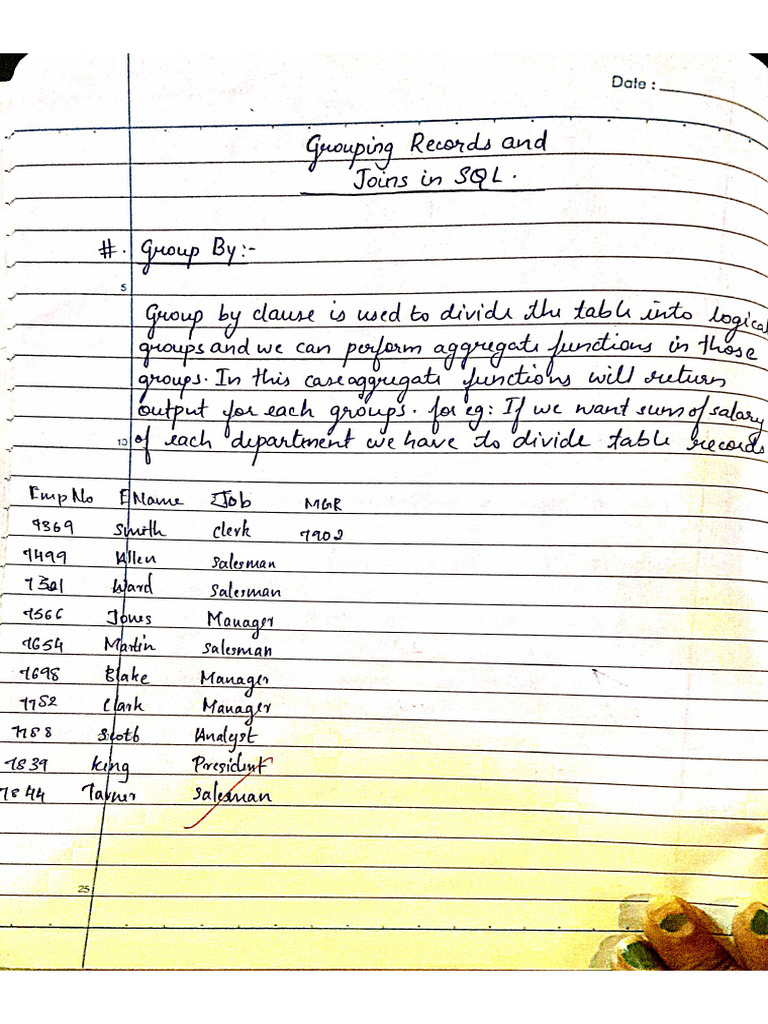 Date :
Grouping Records and
Joins in SQL.
#. Group By:-
5
Group by clause is used to divide the table into logical
groups and we can perform aggregate functions in those
groups. In this case aggregate functions will return
output for each groups. for eg: If we want sum of salary
10 of each department we have to divide table records
Emp No EName Job MGR
7369 Smith clerk 7902
7499 Allen salesman
Ward salesman
7566 Jones Manager
7654 Martin salesman
7698 Blake Manager
Clark Manager
7788 Scott Analyst
7839 king President
7844 salesman
25